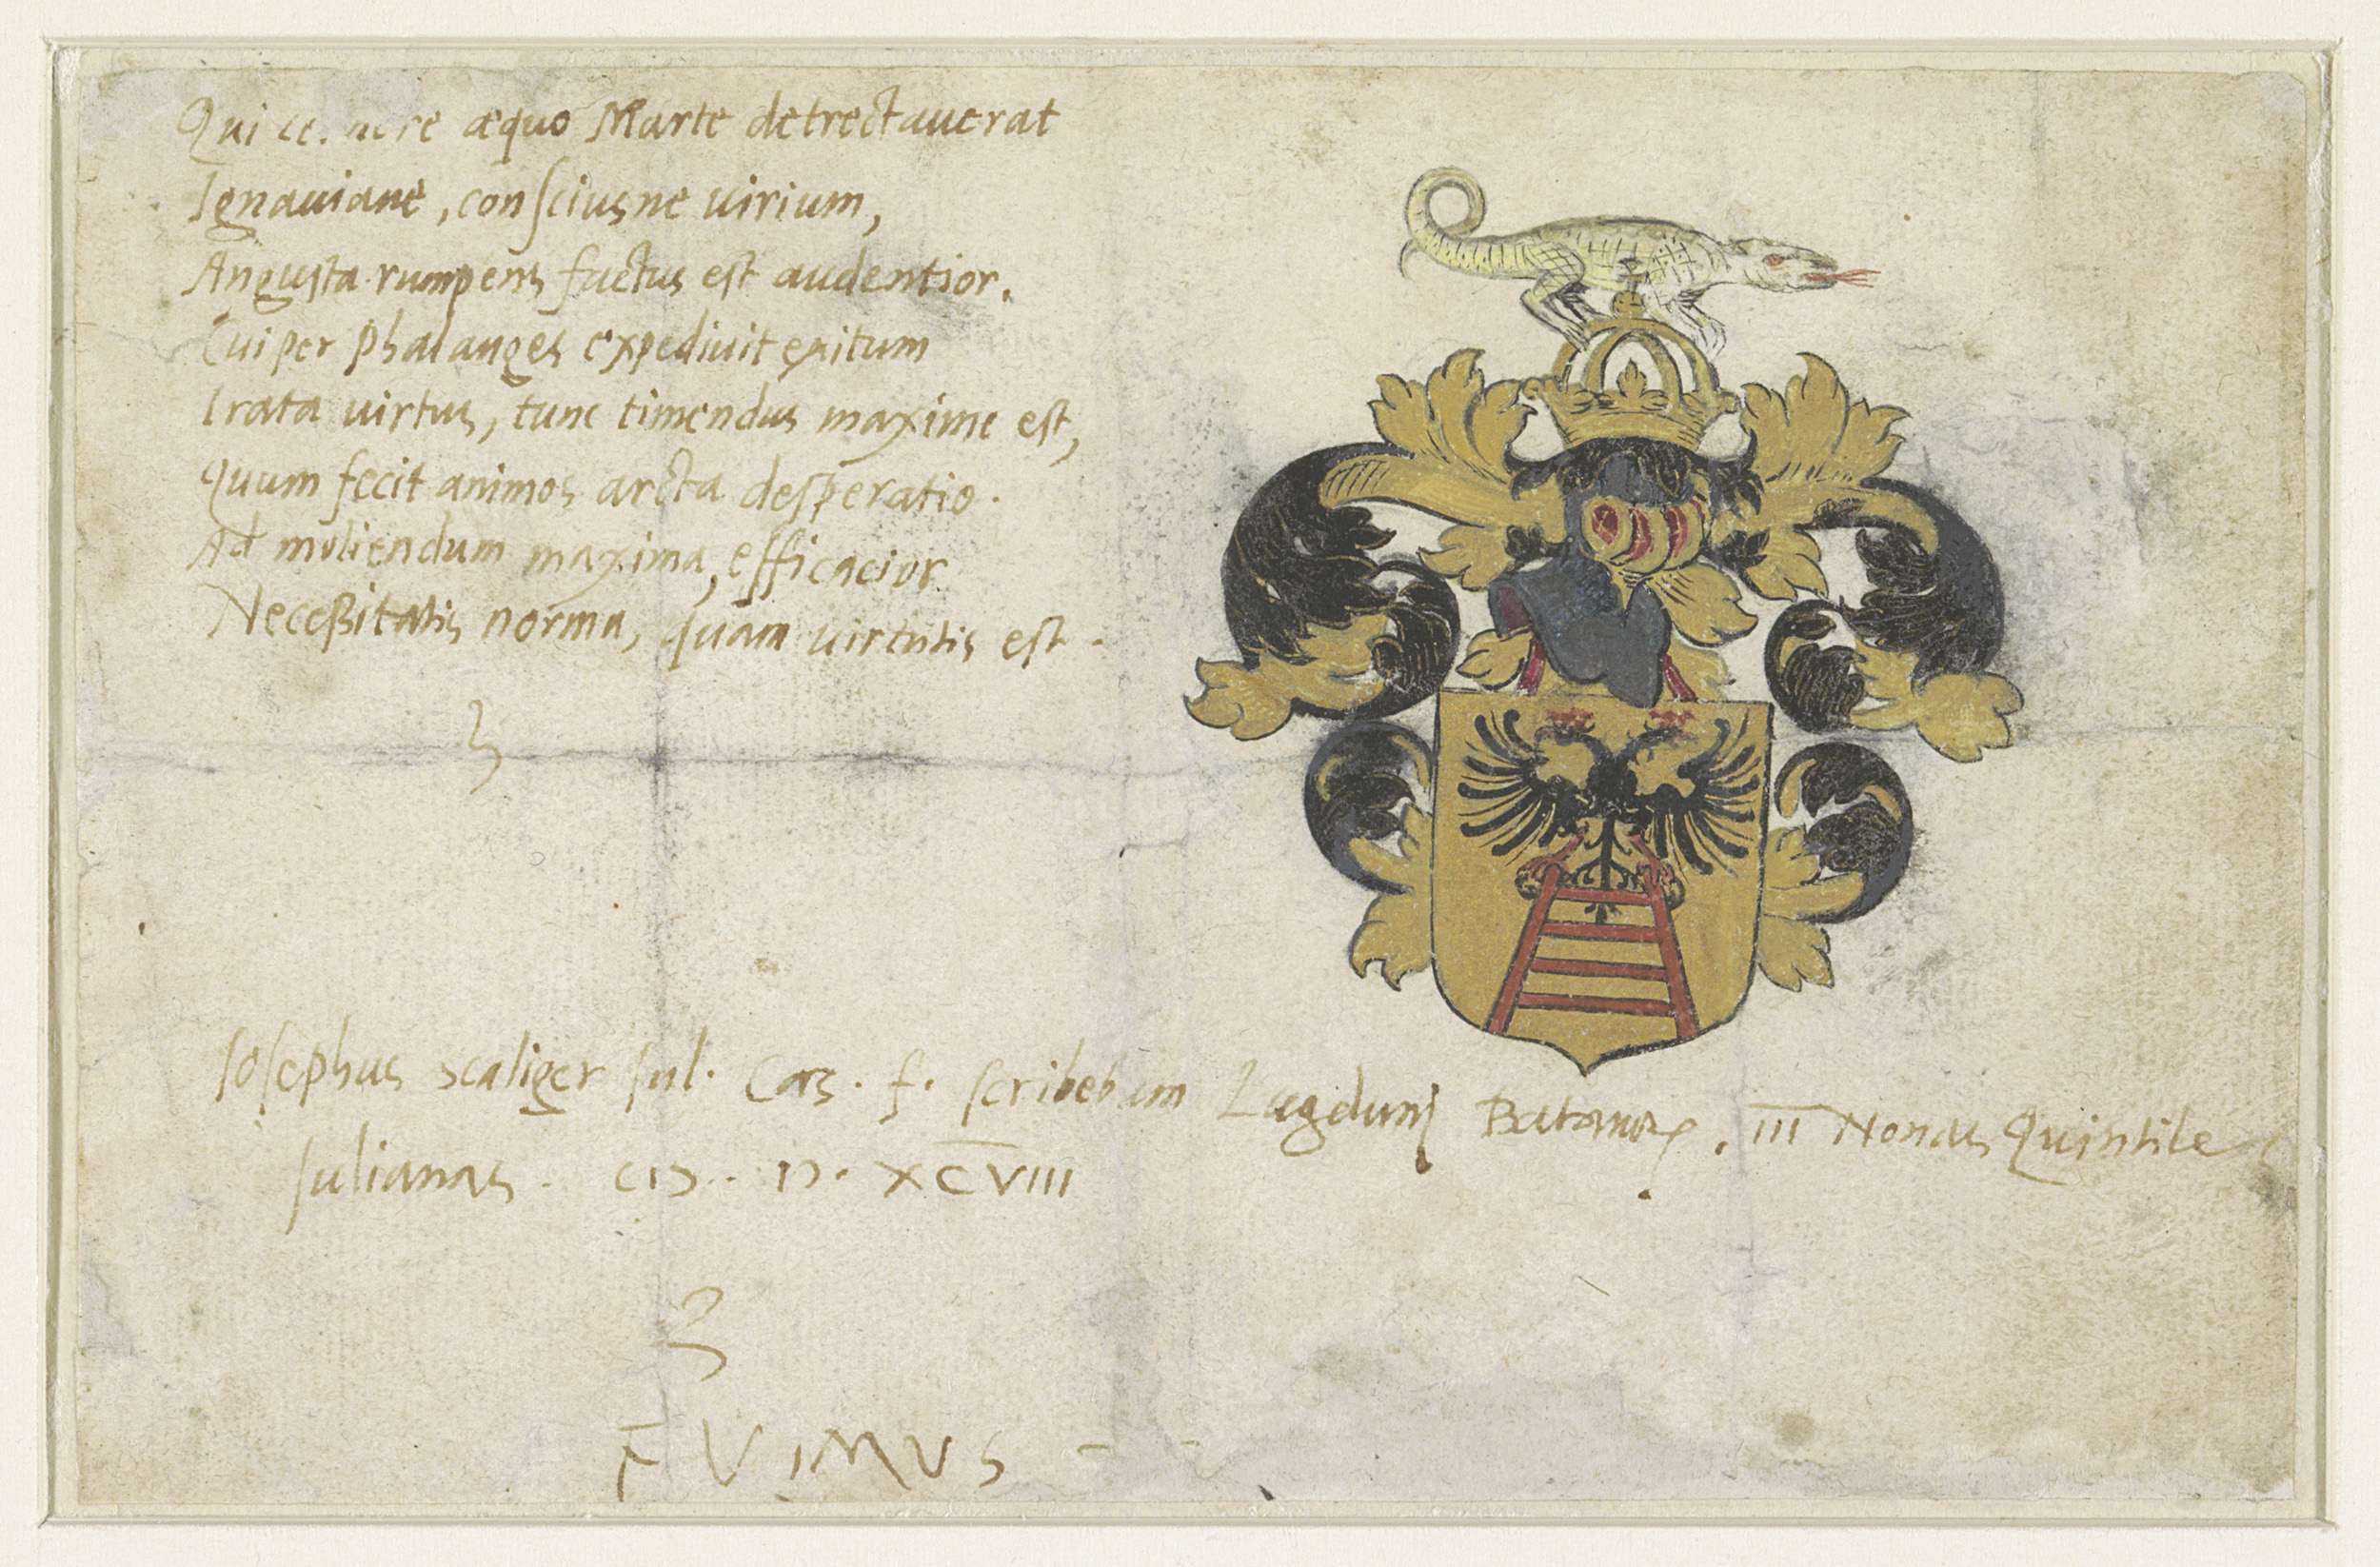 Qui æquo Marte detrectauerat
Ignauiane, conſciusne uirium,
Anguſta rumpens factus eſt audentior.
Cui per phalanges expediuit exitum
Irata uirtus, tunc timendus maxime eſt,
Quum fecit animos arcta deſperatio.
Ad moliendum maxima, efficacior
Neceßitatis norma, quam uirtutis eſt.
Ioſephus Scaliger Iul. Cæs. f. ſcribebam Lugduni Batauor. III Nonas Quintile
Iulianas. CIↃ. IↃ. XCVIII
FUIMUS